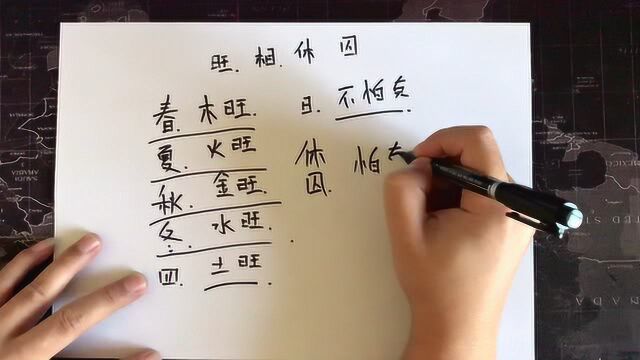 旺.相.休.囚
春.木旺.
夏.火旺
秋.金旺.
冬.水旺.
四.土旺.
日.不怕
休
囚.
怕